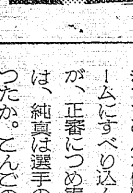 ームにすべり込ん
が、正審につめ寄
は、純真は選手の
つたか。とんでの